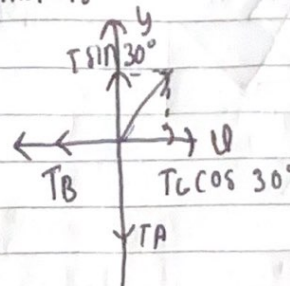 y
T sin 30°
TB
Tc cos 30°
TA